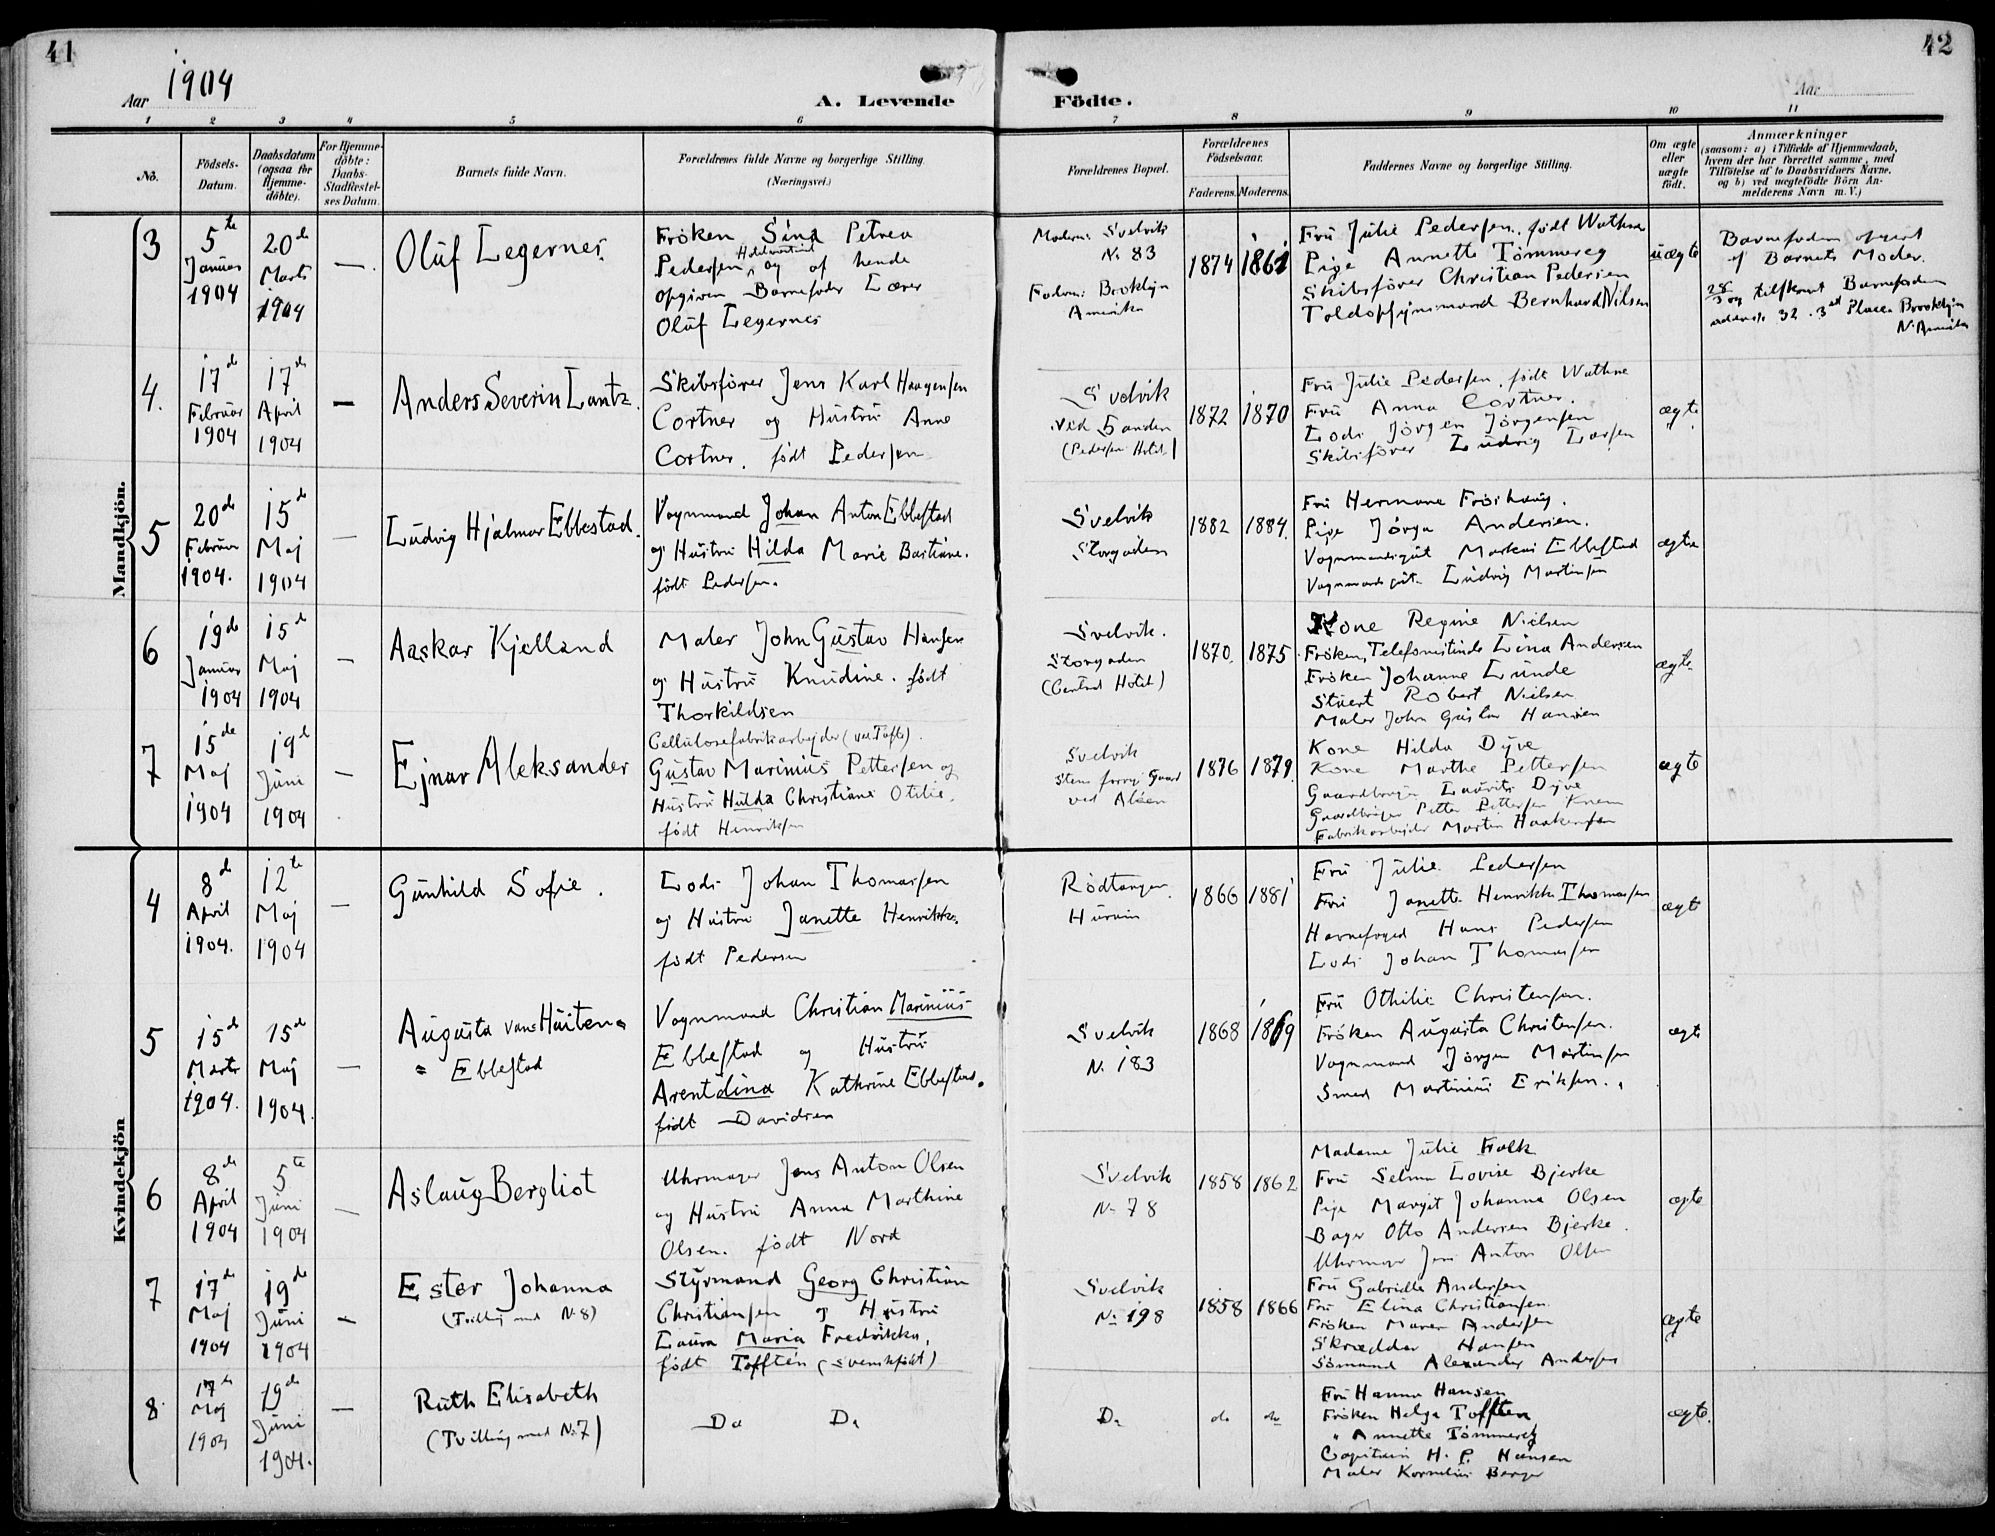 41
42
Aar 1904
A. Levende Födte.
Aar
1 2 3 4 5 6 7 8 9 10 11
No.
Födsels-
Datum.
Daabsdatum
(ogsaa for
Hjemme-
döbte).
For Hjemme-
döbte:
Daabs-
Stadfæstel-
ses Datum.
Barnets fulde Navn.
Forældrenes fulde Navne og borgerlige Stilling.
(Næringsvei.)
Forældrenes Bopæl.
Forældrenes
Födselsaar.
Faderens. Moderens.
Faddernes Navne og borgerlige Stilling.
Om ægte
eller
uægte
födt.
Anmærkninger
(saasom: a) i Tilfælde af Hjemmedaab,
hvem der har forrettet samme, med
Tilföielse af to Daabsvidners Navne,
og b) ved uægtefödte Börn An-
melderens Navn m. V.)
Mandkjön.
3
5te
Januar
1904
20de
Marts
1904
—
Oluf Legernes
Fröken Sina Petrea
Pedersen, og af hende
opgiven Barnefader Lærer
Oluf Legernes
Moderen: Svelvik
No 83
Faderen: Brooklyn
Amerika
1874
1861
Fru Julie Pedersen, født Wathne
Pige Annette Tömmereg
Skibsförer Christian Pedersen
Toldopsynsmand Bernhard Nilsen
uægte
Barnefaderen opgivet
af Barnets Moder.
28/3 og tilskrevet Barnefaderen
adresse 32. 3rd Place Brooklyn
N. Amerika
4.
17de
Februar
1904
17de
April
1904
—
Anders Severin Lantz
Skibsförer Jens Karl Haagensen
Cortner og Hustru Anne
Cortner. født Pedersen
Svelvik
ved Standen
(Pedersen Hotel)
1872
1870
Fru Julie Pedersen, født Wathne
Fru Anna Cortner.
Lods Jörgen Jörgensen
Skibsförer Ludvig Larsen
ægte
5
20de
Februar
1904.
15de
Maj
1904
—
Ludvig Hjalmar Ebbestad.
Vognmand Johan Anton Ebbestad
og Hustru Hilda Marie Bastiane.
født Pedersen.
Svelvik
Storgaden
1882
1884.
Fru Hermane Fröshaug.
Pige Jörga Andersen.
Vognmandsgut Markus Ebbestad
Vognmandsgut Ludvig Martinsen
ægte
6
19de
Januar
1904
15de
Maj
1904
—
Aaskar Kjelland
Maler John Gustav Hansen
og Hustru Knudine. født
Thorkildsen
Svelvik.
Storgaden
(Central Hotel)
1870.
1875
Kone Regine Nielsen
Fröken, Telefonistinde Lina Andersen
Fröken Johanne Lunde
Stuert Robert Nielsen
Maler John Gustav Hansen
ægte
7
15de
Maj
1904
19de
Juni
1904
—
Ejnar Aleksander
Cellulosefabrikarbejder (ved Tofte).
Gustav Marinius Pettersen og
Hustru Hulda Christiane Otilie.
født Henriksen
Svelvik
ved Aleen
1876
1879.
Kone Hilda Dyve
Kone Marthe Pettersen
Gaardbruger Lauritz Dyve
Gaardbruger Petter Pettersen Knem
Fabrikarbejder Martin Haakensen
ægte
Kvindekjön
4
8de
April
1904.
12te
Maj
1904
—
Gunhild Sofie.
Lods Johan Thomassen
og Hustru Janette Henrikke.
født Pedersen
Rödtangen
Hurum
1866
1881
Fru Julie Pedersen
Fru Janette Henrikke Thomassen
Havnefoged Hans Pedersen
Lods Johan Thomassen
ægte
5
15de
Marts
1904.
15de
Maj
1904.
—
Augusta van Huiten=
= Ebbestad
Vognmand Christian Marinius
Ebbestad og Hustru
Arentdina Kathrine Ebbestad.
født Davidsen
Svelvik
No 183
1868
1869
Fru Othilie Christensen.
Fröken Augusta Christensen.
Vognmand Jörgen Martinsen
Smed Martinius Eriksen.
ægte
6
8de
April
1904
5te
Juni
1904
—
Aslaug Bergliot
Uhrmager Jens Anton Olsen
og Hustru Anna Marthine
Olsen. født Nord
Svelvik
No 78
1858
1862
Madame Julie Falk
Fru Selma Lovise Bjerke
Pige Margit Johanne Olsen
Bager Otto Andersen Bjerke.
Uhrmager Jens Anton Olsen
ægte
7
17de
Maj
1904
19de
Juni
1904
—
Ester Johanna
(Tvilling med No 8)
Styrmand Georg Christian
Christiansen og Hustru
Laura Maria Fredrikka,
født Tofftén (svenskfödt)
Svelvik
No 198
1858
1866
Fru Gabrielle Andersen
Fru Elina Christiansen
Fröken Maren Andersen
Skrædder Hansen
Sömand Alexander Andersen
ægte
8
17de
Maj
1904
19de
Juni
1904.
—
Ruth Elisabeth
(Tvilling med No 7)
Do Do
Do
do
do
Fru Hanna Hansen
Fröken Helga Tofften
" Annette Tömmereg
Capitain H. P. Hansen
Maler Kornelius Berger
ægte.